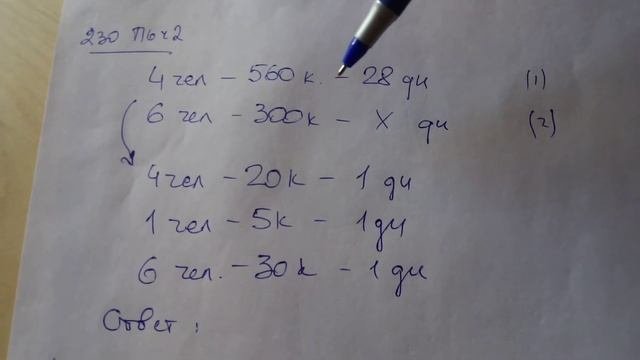 230 П6ч2
4 чел - 560 к. - 28 дн (1)
6 чел - 300к - X дн (2)
4 чел - 20к - 1 дн
1 чел - 5к - 1 дн
6 чел. - 30к - 1 дн
Ответ: